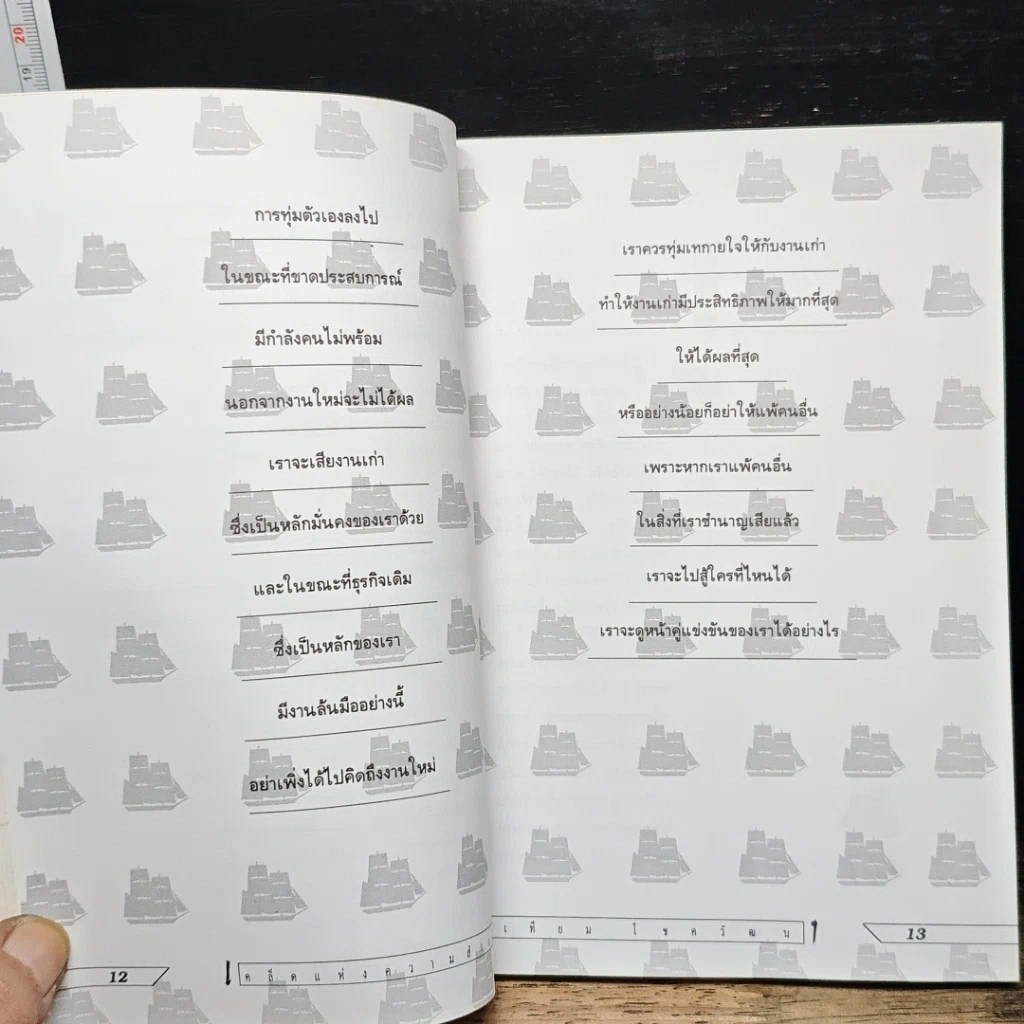 20
19
การทุ่มตัวเองลงไป
ในขณะที่ขาดประสบการณ์
มีกำลังคนไม่พร้อม
นอกจากงานใหม่จะไม่ได้ผล
เราจะเสียงานเก่า
ซึ่งเป็นหลักมั่นคงของเราด้วย
และในขณะที่ธุรกิจเดิม
ซึ่งเป็นหลักของเรา
มีงานล้นมืออย่างนี้
อย่าเพิ่งได้ไปคิดถึงงานใหม่
12
เคล็ดแห่งความ
เราควรทุ่มเทกายใจให้กับงานเก่า
ทำให้งานเก่ามีประสิทธิภาพให้มากที่สุด
ให้ได้ผลที่สุด
หรืออย่างน้อยก็อย่าให้แพ้คนอื่น
เพราะหากเราแพ้คนอื่น
ในสิ่งที่เราชำนาญเสียแล้ว
เราจะไปสู้ใครที่ไหนได้
เราจะดูหน้าคู่แข่งขันของเราได้อย่างไร
เทียม โชควัฒน
13